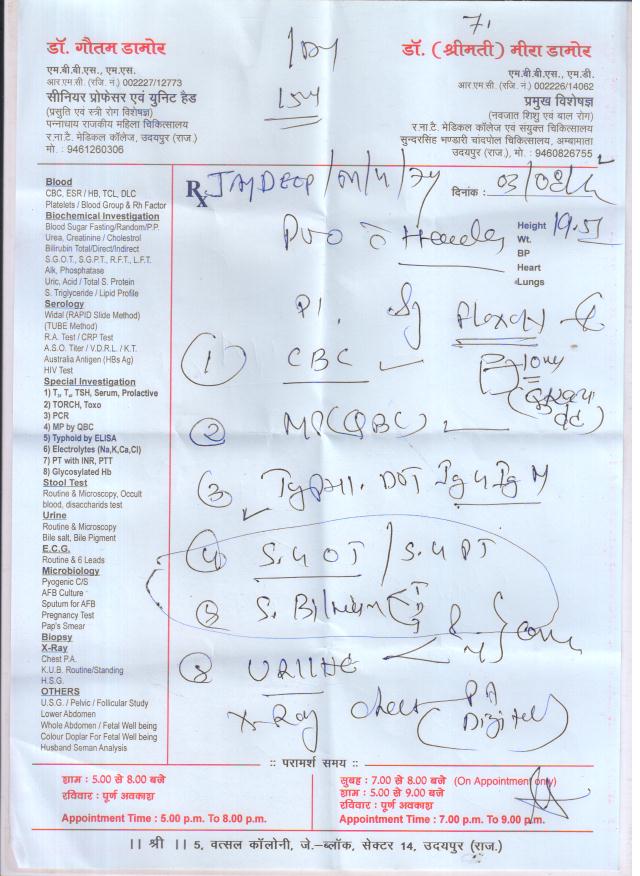 71
डॉ. गौतम डामोर
एम.बी.बी.एस., एम.एस.
आर.एम.सी. (रजि. नं.) 002227/12773
सीनियर प्रोफेसर एवं युनिट हैड
(प्रसुति एवं स्त्री रोग विशेषज्ञ)
पन्नाधाय राजकीय महिला चिकित्सालय
र.ना.टै. मेडिकल कॉलेज, उदयपुर (राज.)
मो. : 9461260306
डॉ. (श्रीमती) मीरा डामोर
एम.बी.बी.एस., एम.डी.
आर.एम.सी. (रजि. नं.) 002226/14062
प्रमुख विशेषज्ञ
(नवजात शिशु एवं बाल रोग)
र.ना.टै. मेडिकल कॉलेज एवं संयुक्त चिकित्सालय
सुन्दरसिंह भण्डारी चांदपोल चिकित्सालय, अम्बामाता
उदयपुर (राज.), मो. : 9460826755
Rx JAYDEEP
दिनांक :
Height 19.5
Wt.
BP
Heart
Lungs
Blood
CBC, ESR / HB, TCL, DLC
Platelets / Blood Group & Rh Factor
Biochemical Investigation
Blood Sugar Fasting/Random/P.P.
Urea, Creatinine / Cholestrol
Bilirubin Total/Direct/Indirect
S.G.O.T., S.G.P.T., R.F.T., L.F.T.
Alk, Phosphatase
Uric, Acid / Total S. Protein
S. Triglyceride / Lipid Profile
Serology
Widal (RAPID Slide Method)
(TUBE Method)
R.A. Test / CRP Test
A.S.O. Titer / V.D.R.L. / K.T.
Australia Antigen (HBs Ag)
HIV Test
Special Investigation
1) T3, T4, TSH, Serum, Prolactive
2) TORCH, Toxo
3) PCR
4) MP by QBC
5) Typhoid by ELISA
6) Electrolytes (Na,K,Ca,Cl)
7) PT with INR, PTT
8) Glycosylated Hb
Stool Test
Routine & Microscopy, Occult
blood, disaccharids test
Urine
Routine & Microscopy
Bile salt, Bile Pigment
E.C.G.
Routine & 6 Leads
Microbiology
Pyogenic C/S
AFB Culture
Sputum for AFB
Pregnancy Test
Pap's Smear
Biopsy
X-Ray
Chest P.A.
K.U.B. Routine/Standing
H.S.G.
OTHERS
U.S.G. / Pelvic / Follicular Study
Lower Abdomen
Whole Abdomen / Fetal Well being
Colour Doplar For Fetal Well being
Husband Seman Analysis
1 CBC
2 MP(QBC)
3 Typhi. DOT Ig G Ig M
4 S.GOT / S.GPT
5 S. Bilirubin
URINE
X-Ray Chest PA
(Digital)
:: परामर्श समय ::
शाम : 5.00 से 8.00 बजे
रविवार : पूर्ण अवकाश
Appointment Time : 5.00 p.m. To 8.00 p.m.
सुबह : 7.00 से 8.00 बजे (On Appointment only)
शाम : 5.00 से 9.00 बजे
रविवार : पूर्ण अवकाश
Appointment Time : 7.00 p.m. To 9.00 p.m.
।। श्री ।। 5, वत्सल कॉलोनी, जे.-ब्लॉक, सेक्टर 14, उदयपुर (राज.)